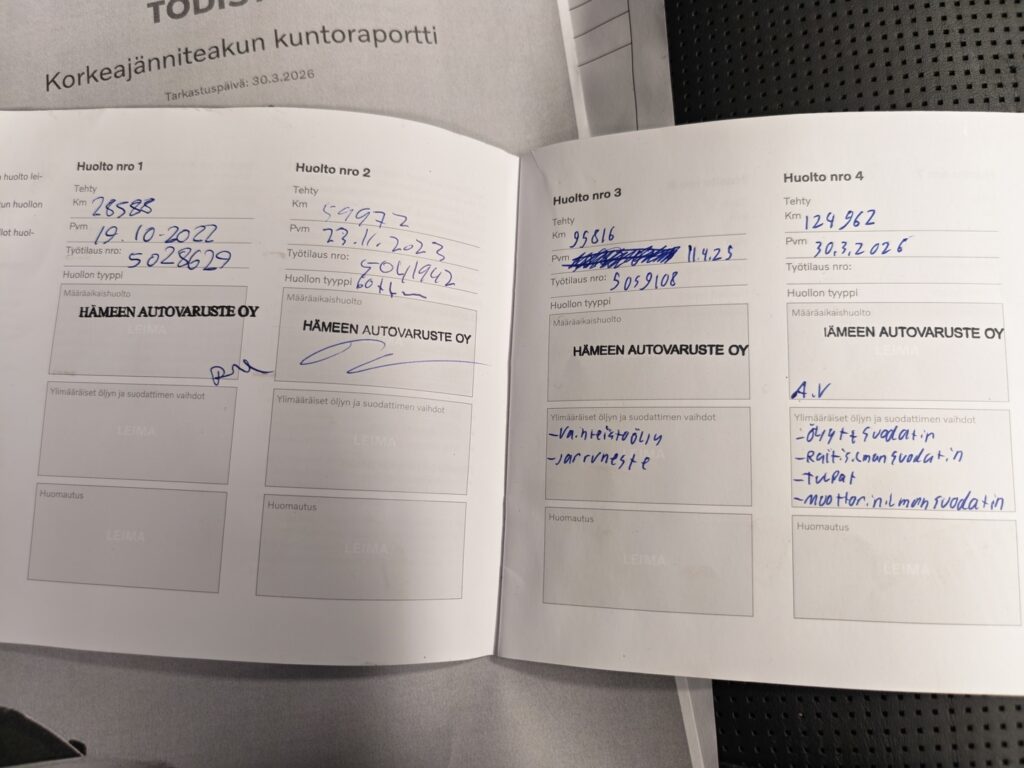 TODIS
Korkeajänniteakun kuntoraportti
Tarkastuspäivä: 30.3.2026
huolto lei-
un huollon
llot huol-
Huolto nro 1
Tehty
Km 28588
Pvm 19.10-2022
Työtilaus nro: 5028629
Huollon tyyppi
Määräaikaishuolto
LEIMA
HÄMEEN AUTOVARUSTE OY
Ylimääräiset öljyn ja suodattimen vaihdot
LEIMA
Huomautus
LEIMA
Huolto nro 2
Tehty
Km 59972
Pvm 23.11.2023
Työtilaus nro: 5041942
Huollon tyyppi 60ttkm
Määräaikaishuolto
HÄMEEN AUTOVARUSTE OY
Ylimääräiset öljyn ja suodattimen vaihdot
LEIMA
Huomautus
LEIMA
Huolto nro 3
Tehty
Km 95816
Pvm 11.4.25
Työtilaus nro: 5059108
Huollon tyyppi
Määräaikaishuolto
HÄMEEN AUTOVARUSTE OY
Ylimääräiset öljyn ja suodattimen vaihdot
-Vaihteistoöljy
-Jarruneste
Huomautus
LEIMA
Huolto nro 4
Tehty
Km 124962
Pvm 30.3.2026
Työtilaus nro:
Huollon tyyppi
Määräaikaishuolto
LEIMA
HÄMEEN AUTOVARUSTE OY
A.V
Ylimääräiset öljyn ja suodattimen vaihdot
-Öljyt+suodatin
-Raitisilmansuodatin
-Tulpat
-Moottorinilmansuodatin
Huomautus
LEIMA